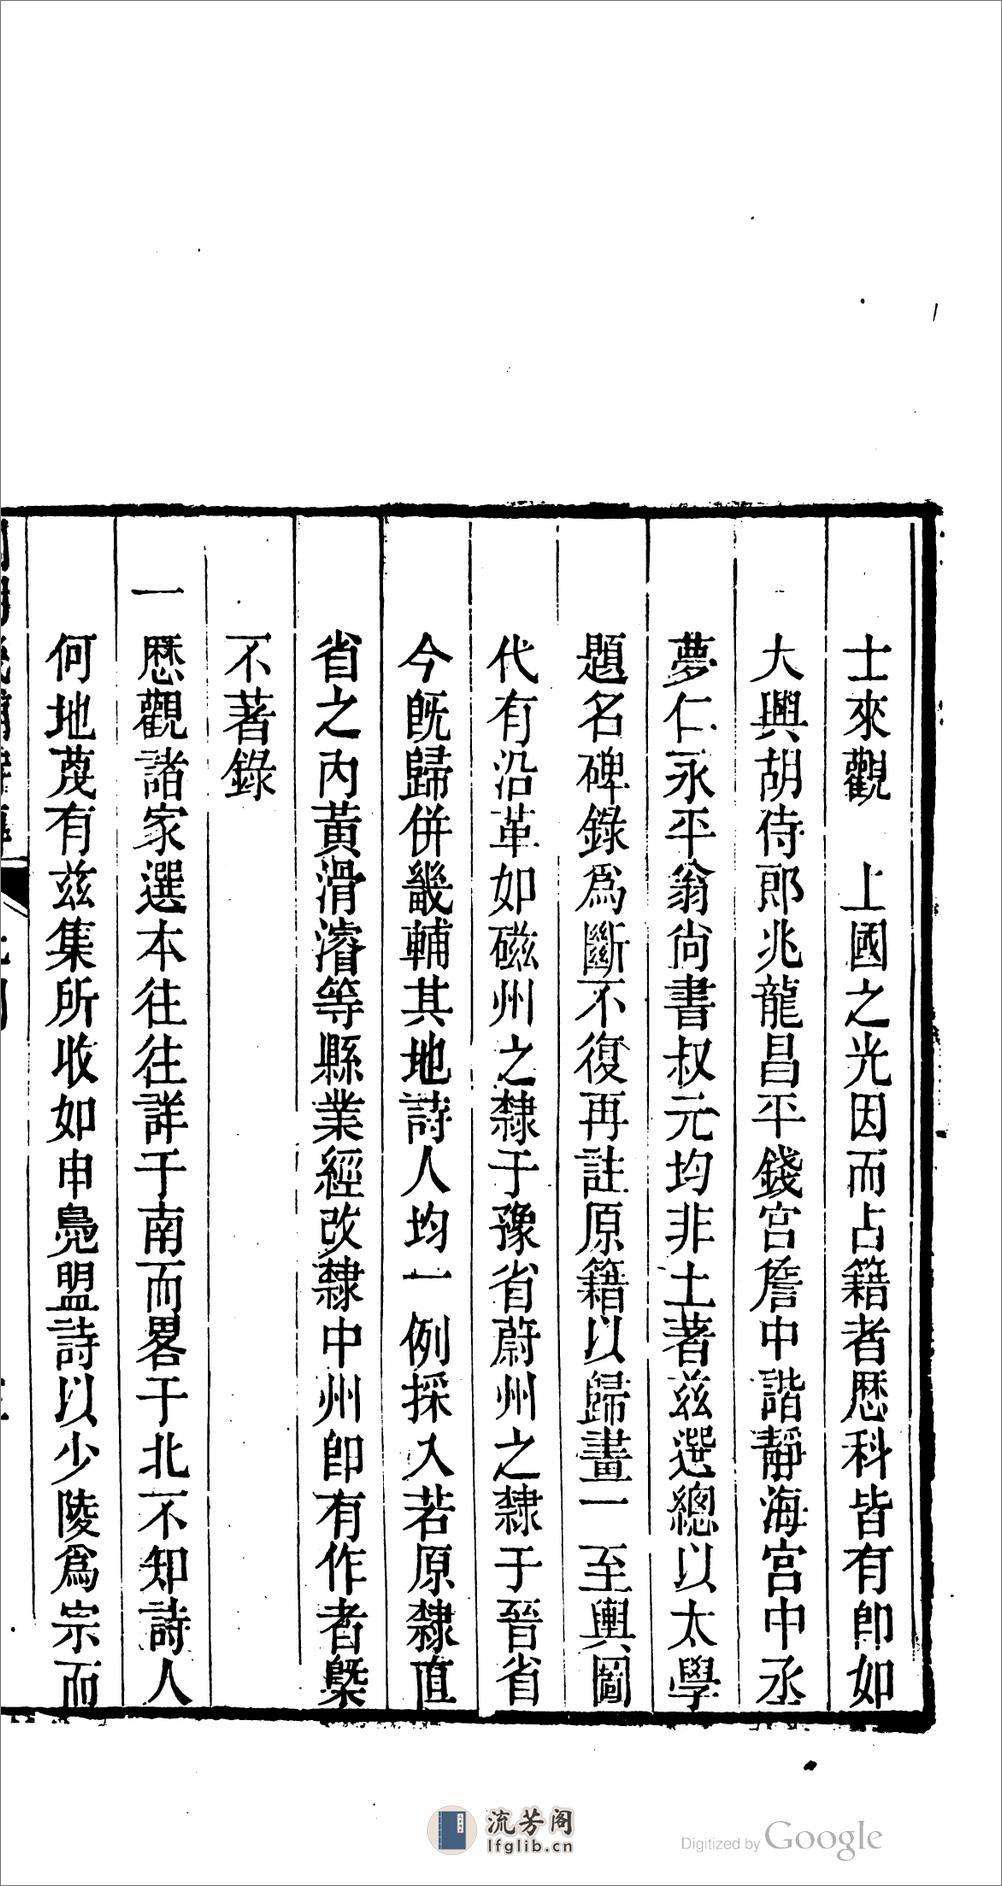 士來觀　上國之光因而占籍者歷科皆有卽如
大興胡侍郎兆龍昌平錢宮詹中諧靜海宮中丞
夢仁永平翁尚書叔元均非土著茲選總以太學
題名碑錄爲斷不復再註原籍以歸畫一至輿圖
代有沿革如磁州之隸于豫省蔚州之隸于晉省
今旣歸併畿輔其地詩人均一例採入若原隸直
省之內黃滑濬等縣業經改隸中州卽有作者槩
不著錄
一歷觀諸家選本往往詳于南而畧于北不知詩人
何地蔑有茲集所收如申鳧盟詩以少陵爲宗而
流芳阁
lfglib.cn
Digitized by Google